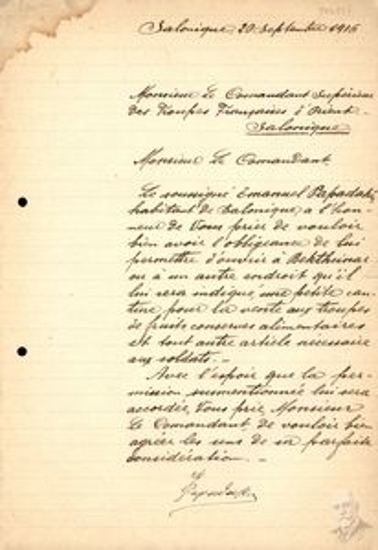 Salonique 20 Septembre 1916
Monsieur Le Comandant Supérieur
des Troupes Françaises d'Orient
Salonique
Monsieur Le Comandant.
Le soussigné Emanuel Papadaki
habitant de Salonique, a l'hon-
neur de Vous prier de vouloir
bien avoir l'obligeance de lui
permettre d'ouvrir à Bekthinar
ou à un autre endroit qu'il
lui sera indiqué une petite can-
tine pour la vente aux troupes
de fruits conserves alimentaires
et tout autre article necessaire
aux soldats. -
Avec l'espoir que la per-
mission susmentionnée lui sera
accordée, Vous prie, Monsieur
Le Comandant de vouloir bien
agréer les sens de m parfaite
considération. -